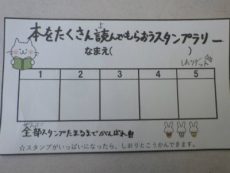 本をたくさん読んでもらおうスタンプラリー
なまえ(　　　　　)
1 2 3 4 5
全部スタンプたまるまでがんばれ!!
☆スタンプがいっぱいになったら、しおりとこうかんできます。